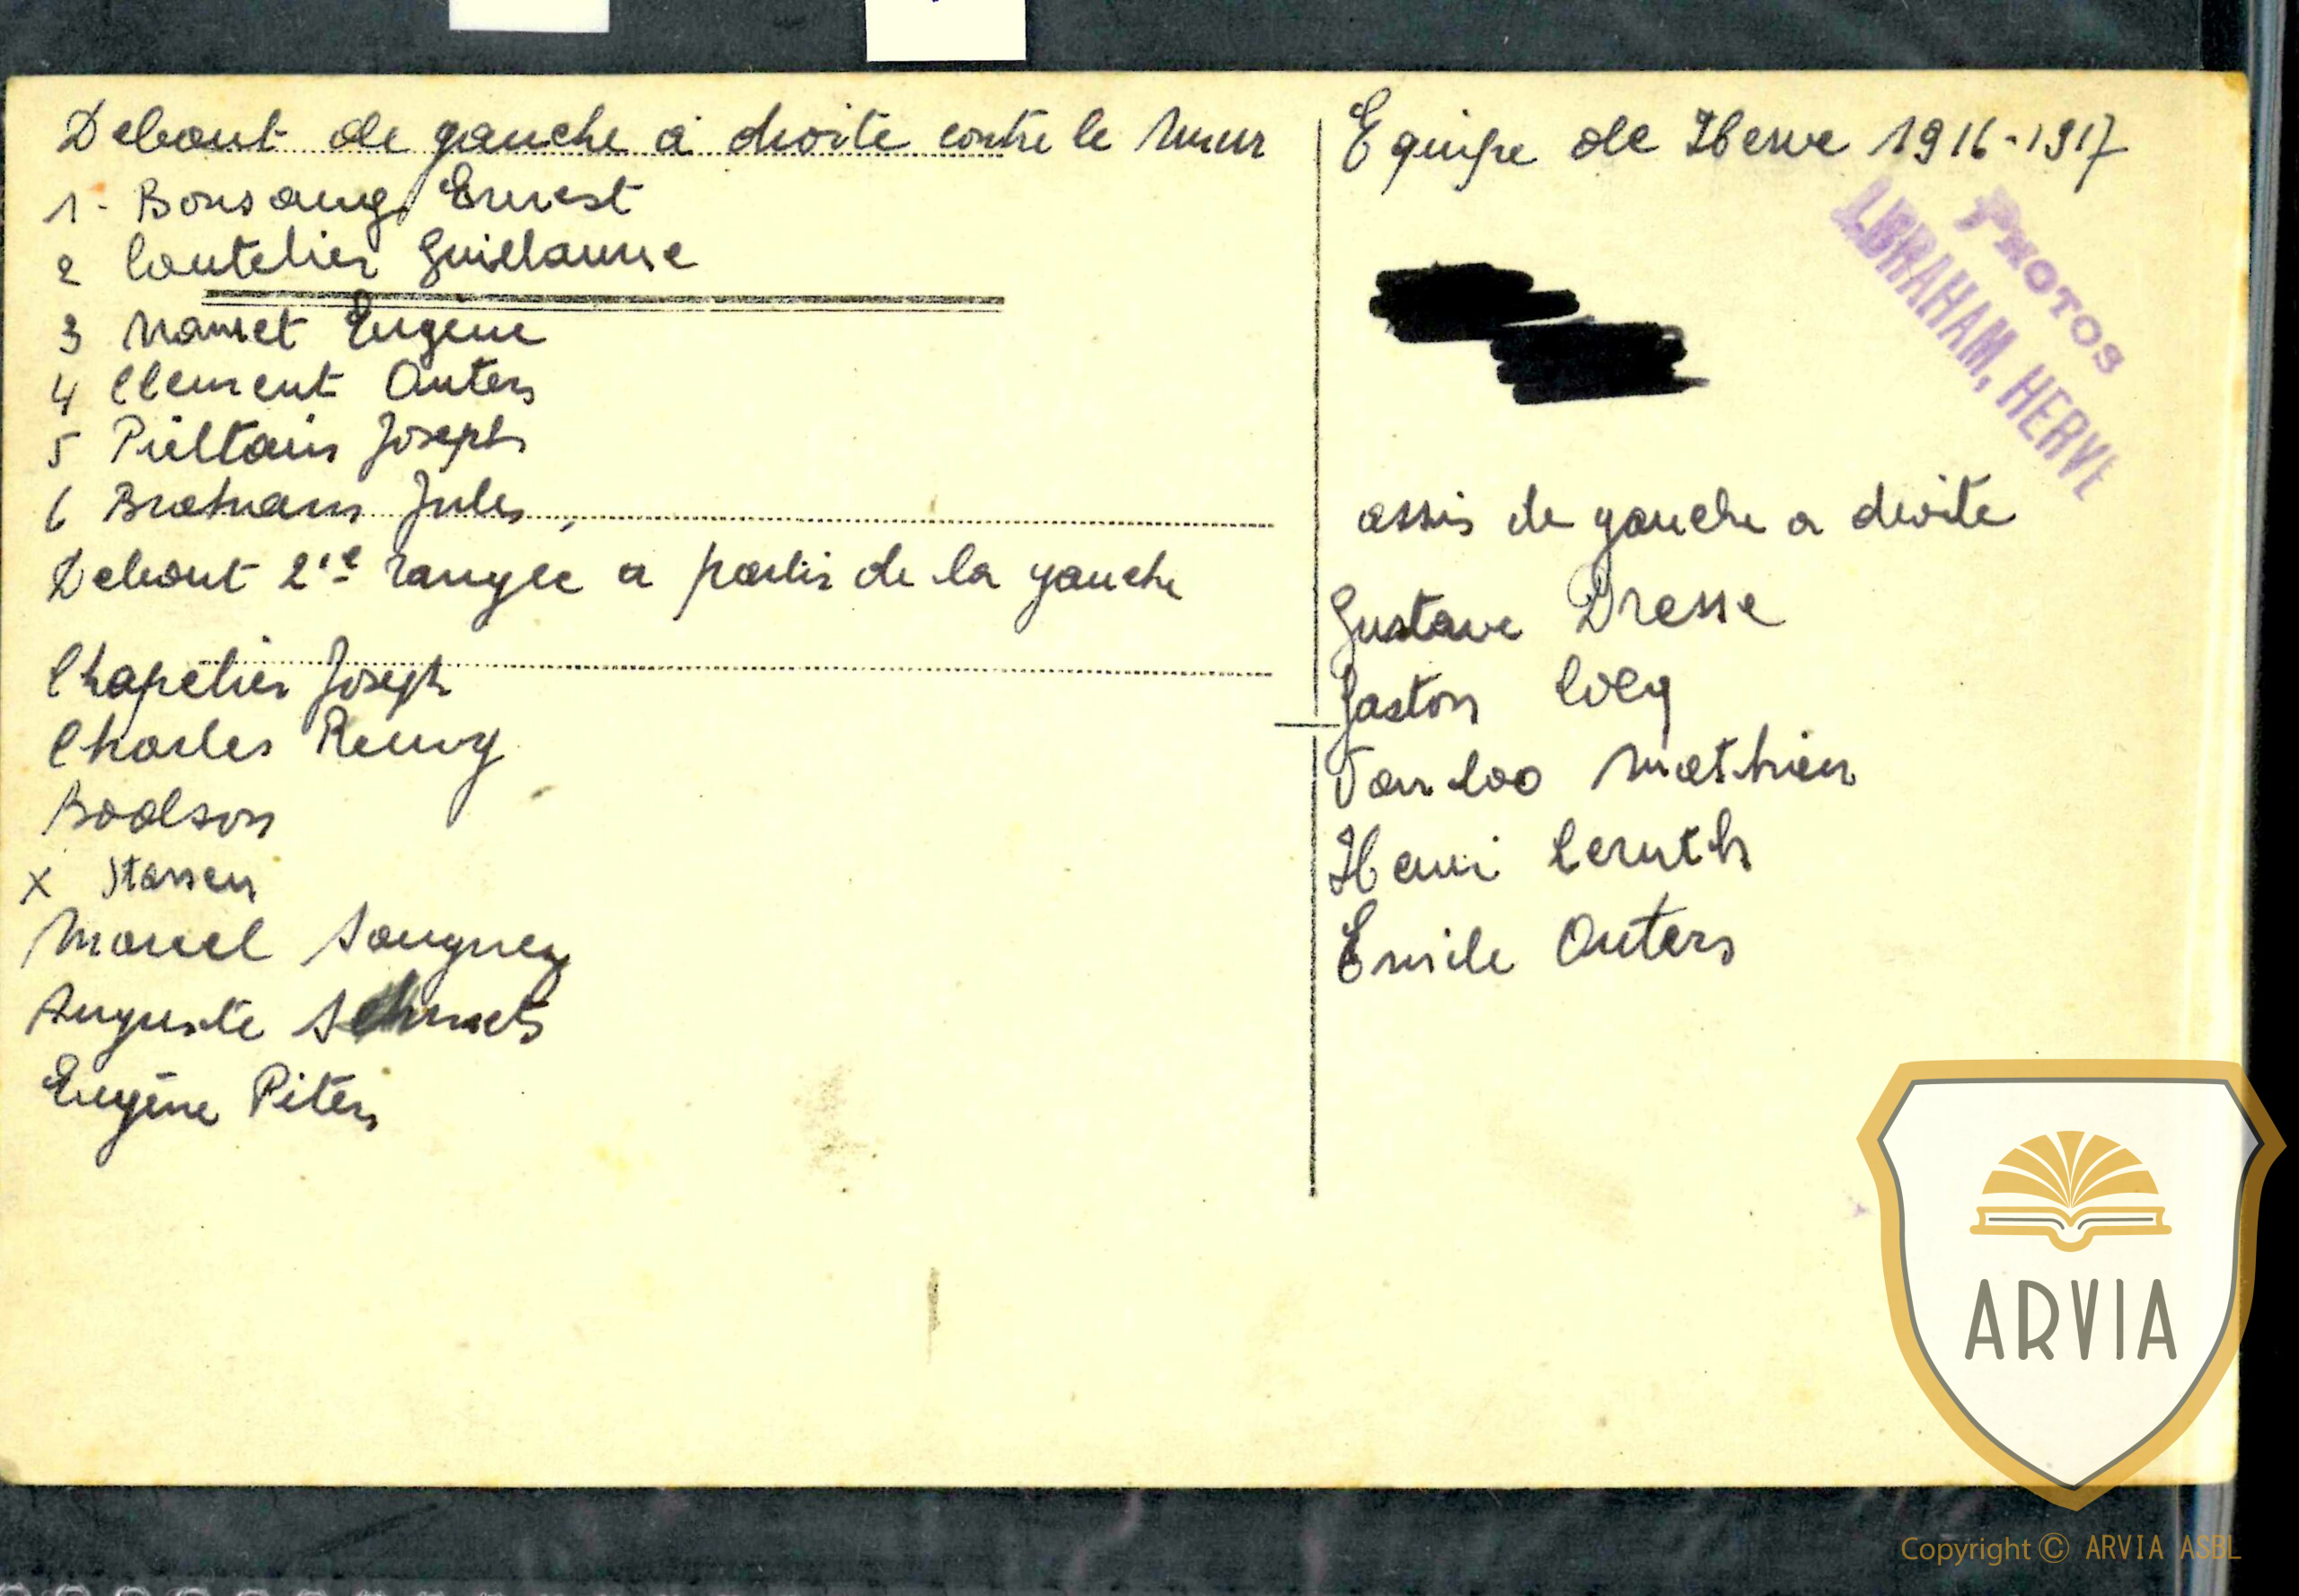 Debout de gauche a droite contre le mur
1- Bonsang Ernest
2 Coutelier Guillaume
3 Nanset Eugène
4 Clement Outers
5 Pieltain Joseph
6 Jules
Debout 2ie rangée a partir de la gauche
Chapelier Joseph
Charles Remy
Bodson
x Stassen
Marcel Sougnez
Auguste Schmets
Eugène Piters
Equipe de Herve 1916-1917
PHOTOS
ABRAHAM, HERVE
assis de gauche a droite
Gustave Dresse
Gaston
Vanloo Mathieu
Henri Leruth
Emile Outers
ARVIA
Copyright © ARVIA ASBL